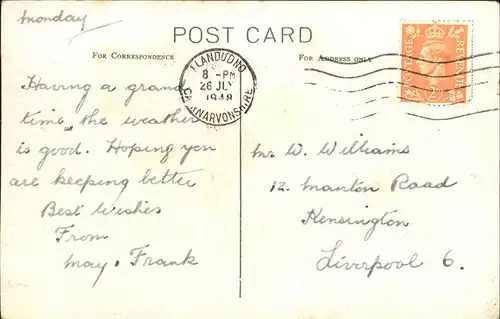 Monday
POST CARD
FOR CORRESPONDENCE
FOR ADDRESS ONLY
LLANDUDNO
8 - PM
26 JLY
1948
CAERNARVONSHIRE
POSTAGE
REVENUE
2D
Having a grand
time, the weather
is good. Hoping you
are keeping better
Best Wishes
From
May & Frank
Mr W. Williams
12. Manton Road
Kensington
Liverpool 6.